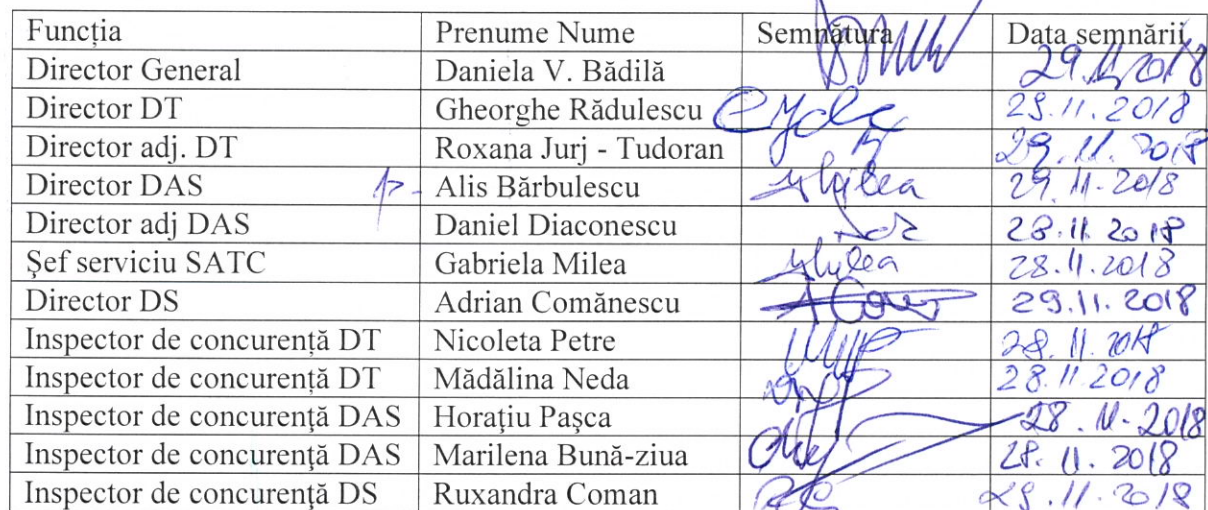 Funcția Prenume Nume Semnătura Data semnării
Director General Daniela V. Bădilă 29.11.2018
Director DT Gheorghe Rădulescu 29.11.2018
Director adj. DT Roxana Jurj - Tudoran 29.11.2018
Director DAS p. Alis Bărbulescu 29.11.2018
Director adj DAS Daniel Diaconescu 28.11.2018
Șef serviciu SATC Gabriela Milea 28.11.2018
Director DS Adrian Comănescu 29.11.2018
Inspector de concurență DT Nicoleta Petre 28.11.2018
Inspector de concurență DT Mădălina Neda 28.11.2018
Inspector de concurență DAS Horațiu Pașca 28.11.2018
Inspector de concurență DAS Marilena Bună-ziua 28.11.2018
Inspector de concurență DS Ruxandra Coman 29.11.2018